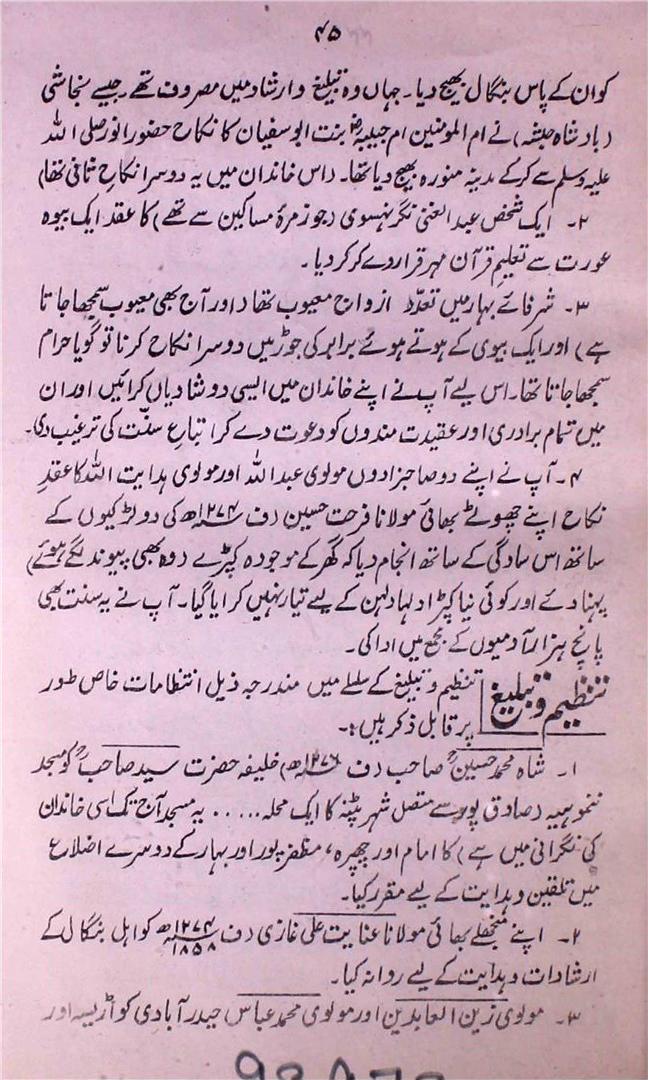 ۴۵
کو ان کے پاس بنگال بھیج دیا۔ جہاں وہ تبلیغ و ارشاد میں مصروف تھے جیسے نجاشی
(بادشاہ حبشہ) نے ام المومنین ام حبیبہؓ بنت ابوسفیان کا نکاح حضور انور صلی اللہ
علیہ وسلم سے کرکے مدینہ منورہ بھیج دیا تھا۔ (اس خاندان میں یہ دوسرا نکاح ثانی تھا)
۲۔ ایک شخص عبدالغنی نگرنہسوی (جو زمرۂ مساکین سے تھے) کا عقد ایک بیوہ
عورت سے تعلیم قرآن مہر قرار دے کر کر دیا۔
۳۔ شرفائے بہار میں تعدّد ازواج معیوب تھا (اور آج بھی معیوب سمجھا جاتا
ہے) اور ایک بیوی کے ہوتے ہوئے برابر کی جوڑ میں دوسرا نکاح کرنا تو گویا حرام
سمجھا جاتا تھا۔ اس لیے آپ نے اپنے خاندان میں ایسی دو شادیاں کرائیں اور ان
میں تمام برادری اور عقیدت مندوں کو دعوت دے کر اتباعِ سنّت کی ترغیب دی۔
۴۔ آپ نے اپنے دو صاحبزادوں مولوی عبداللہ اور مولوی ہدایت اللہ کا عقدِ
نکاح اپنے چھوٹے بھائی مولانا فرحت حسین (ف ۱۲۷۴ھ) کی دو لڑکیوں کے
ساتھ اس سادگی کے ساتھ انجام دیا کہ گھر کے موجودہ کپڑے (وہ بھی پیوند لگے ہوئے)
پہنا دئے اور کوئی نیا کپڑا دلہا دلہن کے لیے تیار نہیں کرایا گیا۔ آپ نے یہ سنت بھی
پانچ ہزار آدمیوں کے مجمع میں ادا کی۔
تنظیم و تبلیغ تنظیم و تبلیغ کے سلسلے میں مندرجہ ذیل انتظامات خاص طور
پر قابل ذکر ہیں:۔
۱۔ شاہ محمد حسینؒ صاحب (ف ۱۲۷۶ھ) خلیفہ حضرت سید صاحبؒ کو مسجد
نموہیہ (صادق پور سے متصل شہر پٹنہ کا ایک محلہ ..... یہ مسجد آج تک اسی خاندان
کی نگرانی میں ہے) کا امام اور چھپرہ، مظفر پور اور بہار کے دوسرے اضلاع
میں تلقین و ہدایت کے لیے مقرر کیا۔
۲۔ اپنے منجھلے بھائی مولانا عنایت علی غازی (ف ۱۲۷۴ھ ۱۸۵۸ء) کو اہل بنگال کے
ارشادات و ہدایت کے لیے روانہ کیا۔
۳۔ مولوی زین العابدین اور مولوی محمد عباس حیدر آبادی کو اڑیسہ اور